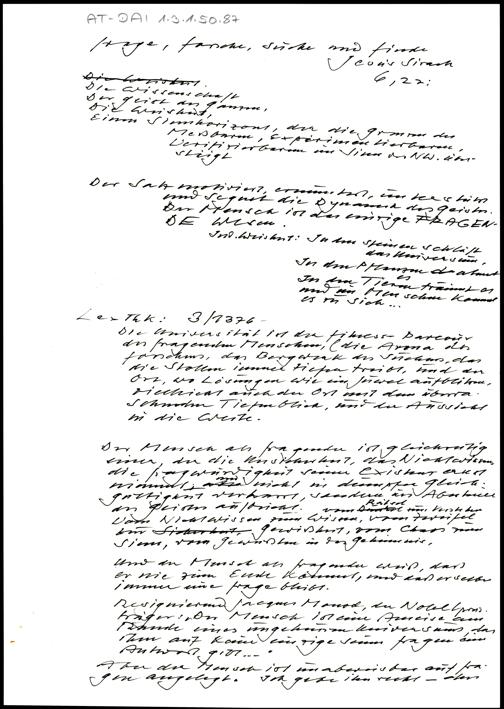 AT-DAI 1.3.1.50.87
frage, forsche, suche und finde
Jesus Sirach
6,27:
Die Weisheit.
Die Wissenschaft
Der Geist des ganzen,
Die Weisheit,
Einen Sinnhorizont, der die grenzen des
Messbaren, Experimentierbaren,
Verifizierbaren im Sinn der NW. über-
steigt
Der Satz motiviert, ermuntert, unterstützt
und segnet die Dynamik des geistes.
Der Mensch ist das einzige FRAGEN-
DE Wesen.
Ind. Weisheit: In den Steinen schläft
das Universum,
In den Pflanzen da atmet
es
In den Tieren träumt es
und im Menschen kommt
es zu sich...
Lex ThK: 3/1376-
Die Universität ist der fitness Parcour
des fragenden Menschen, (die Arena des
forschens, das Bergwerk des Suchens, das
die Stollen immer tiefer treibt, und der
Ort, wo Lösungen wie ein Juwel aufblühen,
vielleicht auch der Ort mit dem überra-
schenden Tiefenblick, und der Aussicht
in die Weite.
Der Mensch als fragender ist gleichzeitig
einer, der die Unsicherheit, das Nichtwissen,
die fragwürdigkeit seiner Existenz ernst
nimmt, und nicht in dumpfer gleich-
gültigkeit verharrt, sondern ins Abenteuer
des geistes aufbricht. vom Rätsel
vom Nichtwissen zum Wissen, vom zweifel
zur gewissheit, vom Chaos zum
Sinn, vom gewussten in das geheimnis.
Und der Mensch als fragender weiß, daß
er nie zum Ende kommt, und daß er selber
immer eine frage bleibt.
Resignierend Jacques Monod, der Nobelpreis-
träger: "Der Mensch ist eine Ameise am
Rande eines ungeheuren Universums, das
ihm auf keine einzige seiner fragen eine
Antwort gibt..."
Aber der Mensch ist unabweisbar auf fra-
gen angelegt. Ich gebe ihm recht – den